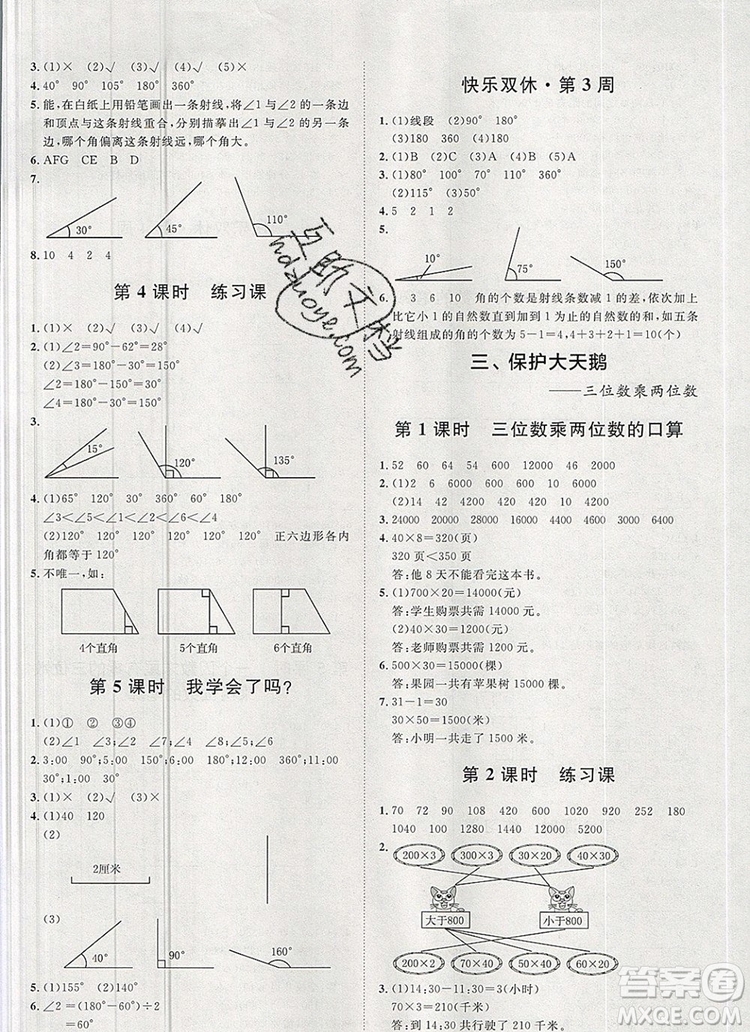 3. (1)× (2)√ (3)√ (4)√ (5)×
4. 40° 90° 105° 180° 360°
5. 能,在白纸上用铅笔画出一条射线,将∠1与∠2的一条边
和顶点与射线重合,分别描摹出∠1与∠2的另一条边,
哪个角偏离这条射线远,哪个角大。
6. AFG CE B D
7.
30° 45° 110°
8. 10 4 2 4
第 4 课时 练习课
1. (1)× (2)√ (3)× (4)√ (5)×
2. (1)∠2=90°-62°=28°
(2)∠3=180°-30°=150°
∠4=180°-150°=30°
∠2=180°-30°=150°
3.
15° 120° 135°
4. (1)65° 120° 30° 180° 90° 360°
∠3<∠1<∠2<∠5<∠4<∠6
(2)120° 120° 120° 120° 正六边形各内
角都等于120°
5. 不唯一,如:
4个直角 5个直角 6个直角
第 5 课时 我学会了吗?
1. (1)① ② ③④
(2)∠1 ∠2 ∠3 ∠4;∠5;∠6
2. 3:00 9:00;6:00;1:00 11:00;12:00
30°;150°;90°;120°;180°
3. (1)× (2)√ (3)√ (4)×
4. (1)40 120
(2)
2厘米
(3)
40° 90° 160°
5. (1)155° (2)140°
6. ∠2=(180°-60°)÷2
=60°
快乐双休·第 3 周
1. (1)线段 (2)90° 180°
2. (1)B (2)C (3)D (4)B (5)A
3. (1)25° 65° 180° 360°
(2)115° (3)50°
4. 5 2 1 2
5.
10° 75° 150°
6. 1 3 6 10 角的个数是射线条数减1的差,依次加上
比它小1的自然数直到加到1为止的自然数的和,如五条
射线组成的角的个数为5-1=4,4+3+2+1=10(个)
三、保护大天鹅
——三位数乘两位数
第 1 课时 三位数乘两位数的口算
1. 52 60 64 54 12000 46 12000
2. (1)2 8000 6 6000 2 10000
(2)14 4200 14 4200 42 4200
3. 24000 24000 28000 16000 6400 16000
4. 40×8=320(页)
320页<350页
答:他8天不能看完这本书。
5. (1)700×20=14000(元)
答:学生购票共需付14000元。
(2)400×40=16000(元)
答:老师购票共需付16000元。
6. 500×30=15000(棵)
答:果园一共有苹果树15000棵。
7. 31-1=30
30×50=1500(米)
答:小明一共行了1500米。
第 2 课时 练习课
1. 70 72 90 108 120 920 252 180
1040 120 1280 640 6000
2.
200×3 300×3 30×20 40×30
大于800 小于800
900×2 70×40 50×10 60×20
3. (1)14:30-11:30=3(小时)
70×3=210(千米)
答:到14:30行了210千米。
互助文档
hdzuoye.com
答案圈
MXQE.COM